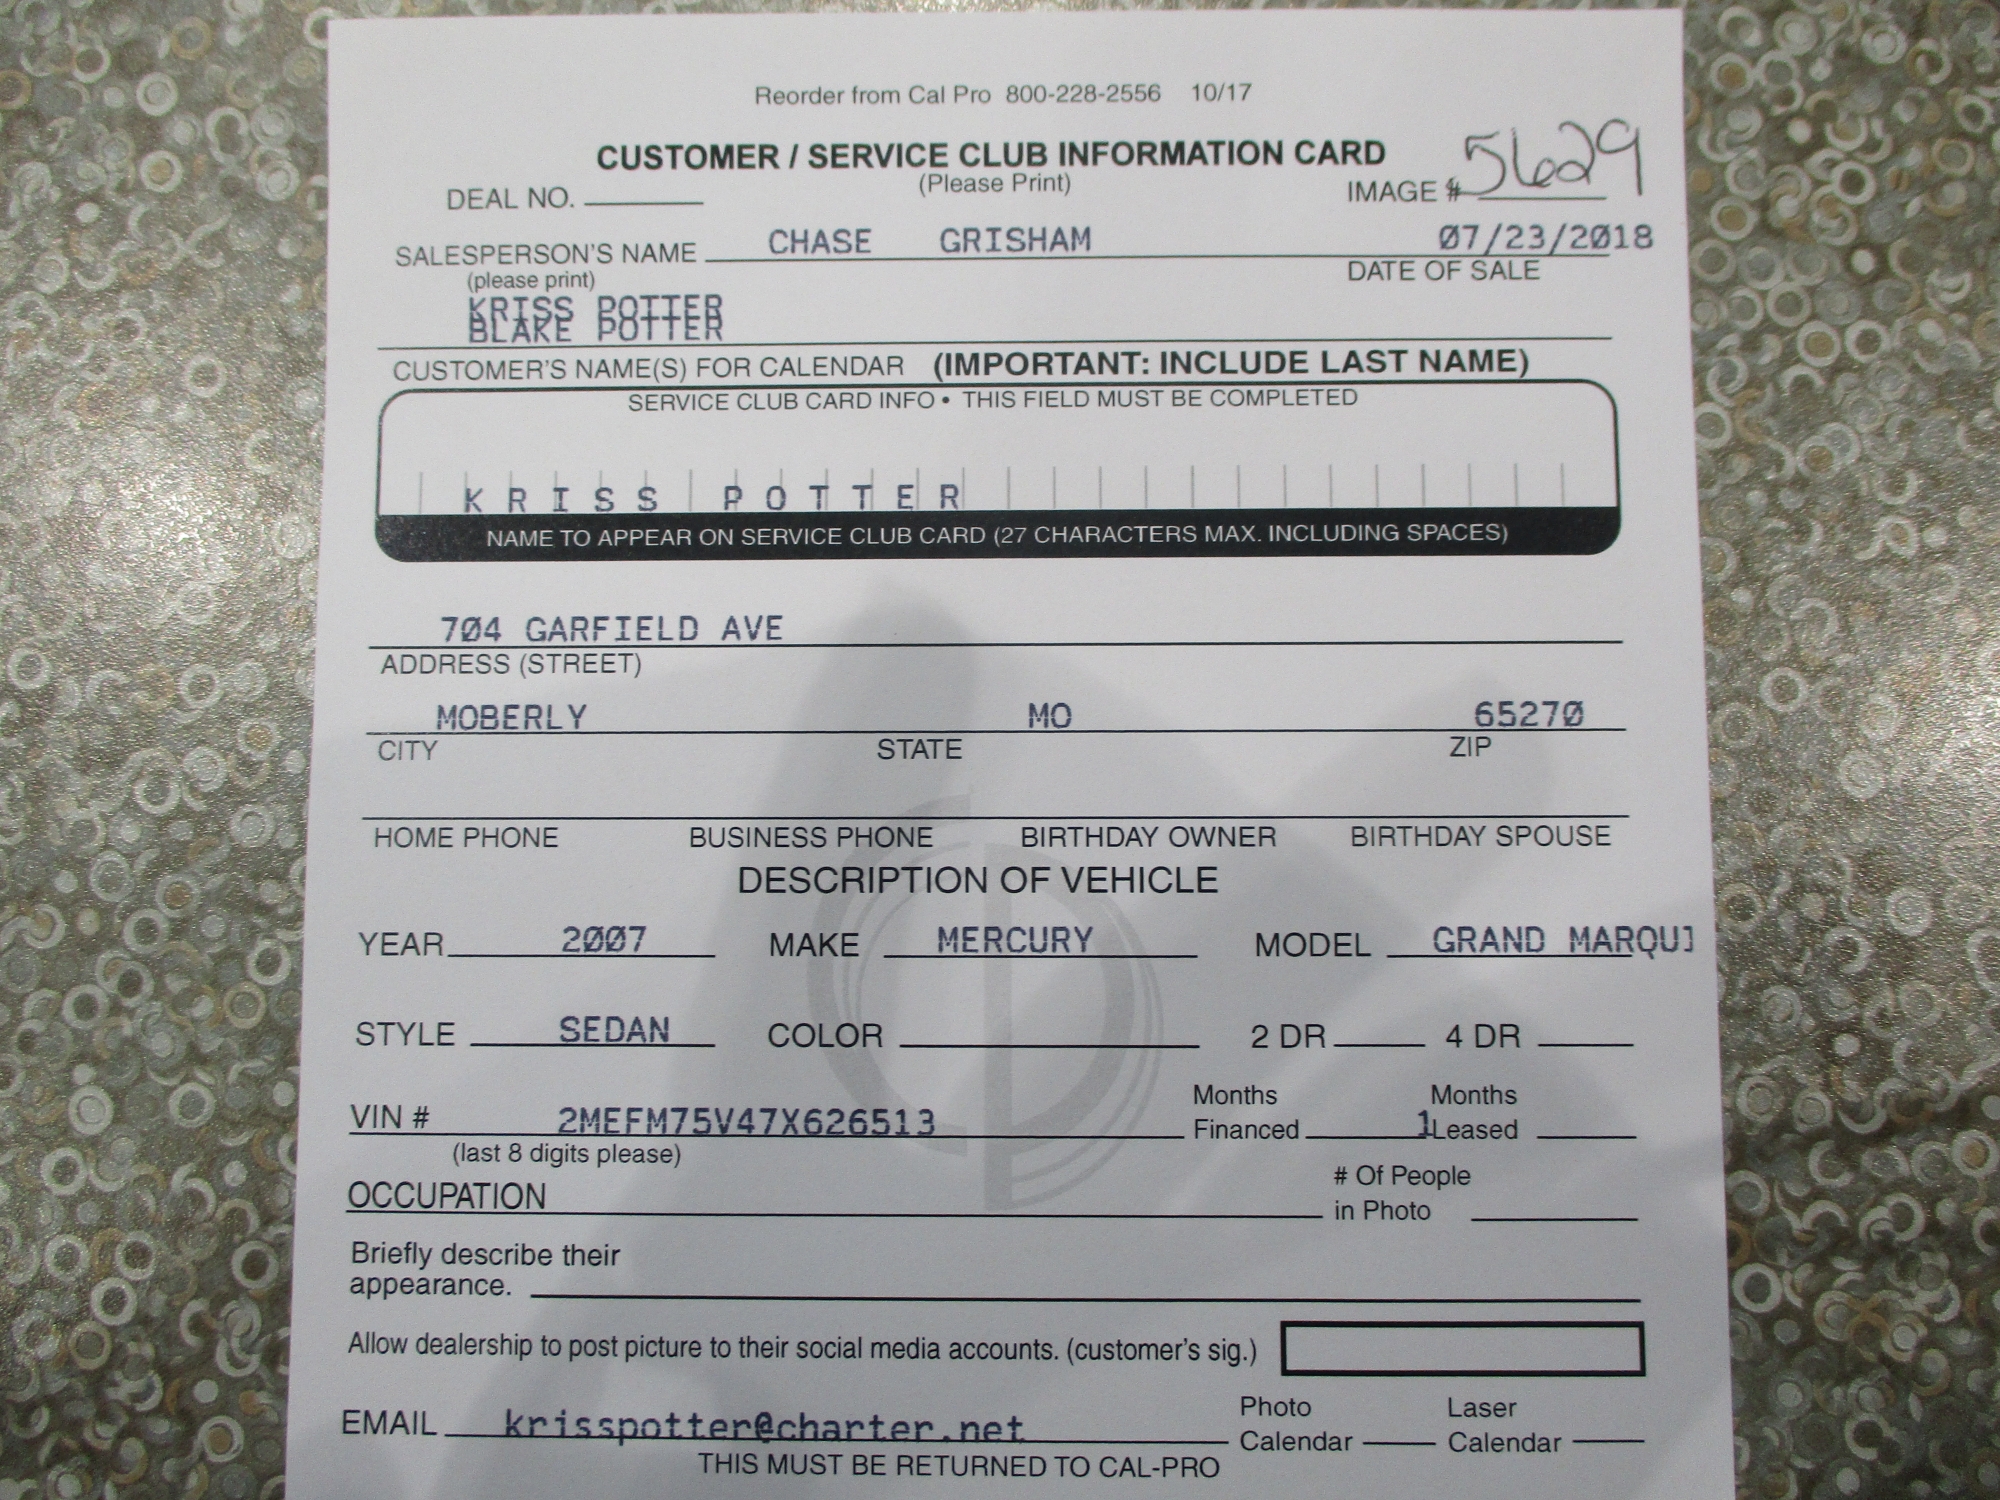 Reorder from Cal Pro 800-228-2556 10/17
CUSTOMER / SERVICE CLUB INFORMATION CARD
(Please Print)
DEAL NO.
IMAGE # 5629
SALESPERSON'S NAME CHASE GRISHAM 07/23/2018
(please print)
DATE OF SALE
KRISS POTTER
BLAKE POTTER
CUSTOMER'S NAME(S) FOR CALENDAR (IMPORTANT: INCLUDE LAST NAME)
SERVICE CLUB CARD INFO • THIS FIELD MUST BE COMPLETED
KRISS POTTER
NAME TO APPEAR ON SERVICE CLUB CARD (27 CHARACTERS MAX. INCLUDING SPACES)
704 GARFIELD AVE
ADDRESS (STREET)
MOBERLY MO 65270
CITY STATE ZIP
HOME PHONE BUSINESS PHONE BIRTHDAY OWNER BIRTHDAY SPOUSE
DESCRIPTION OF VEHICLE
YEAR 2007 MAKE MERCURY MODEL GRAND MARQUI
STYLE SEDAN COLOR 2 DR 4 DR
VIN # 2MEFM75V47X626513 Months Financed 1 Months Leased
(last 8 digits please)
OCCUPATION # Of People in Photo
Briefly describe their
appearance.
Allow dealership to post picture to their social media accounts. (customer's sig.)
EMAIL krisspotter@charter.net Photo Calendar Laser Calendar
THIS MUST BE RETURNED TO CAL-PRO